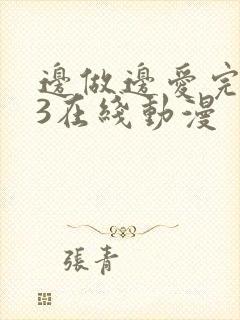 邊做邊愛完
3在綫動漫
張青